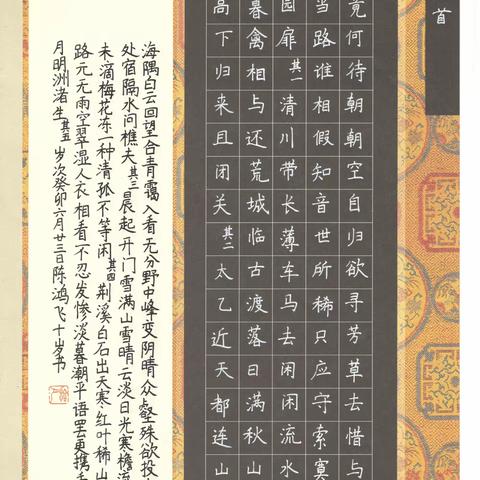 首
竟何待朝朝空自归欲寻芳草去惜与
当路谁相假知音世所稀只应守索寞
园扉其一清川带长薄车马去闲闲流水
暮禽相与还荒城临古渡落日满秋山
高下归来且闭关其二太乙近天都连山
海隅白云回望合青霭入看无分野中峰变阴晴众壑殊欲投
处宿隔水问樵夫其三晨起开门雪满山雪晴云淡日光寒檐流
未滴梅花冻一种清孤不等闲其四荆溪白石出天寒红叶稀山
路元无雨空翠湿人衣相看不忍发惨淡暮潮平语罢更携手
月明洲渚生其五岁次癸卯六月廿三日陈鸿飞十岁书